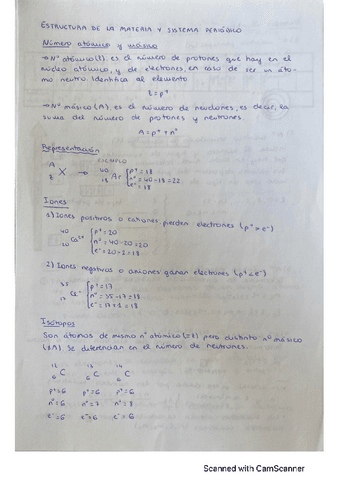 ESTRUCTURA DE LA MATERIA Y SISTEMA PERIÓDICO
Número atómico y másico
→ Nº atómico (Z), es el número de protones que hay en el
núcleo atómico, y de electrones, en caso de ser un áto-
mo neutro. Identifica al elemento
Z = p⁺
→ Nº másico (A), es el número de neucleones, es decir, la
suma del número de protones y neutrones.
A = p⁺ + n⁰
Representación
EJEMPLO
A Z X → 40 18 Ar { p⁺ = 18
n⁰ = 40 - 18 = 22
e⁻ = 18
Iones
1) Iones positivos o cationes pierden electrones (p⁺ > e⁻)
40 20 Ca²⁺ { p⁺ = 20
n⁰ = 40 - 20 = 20
e⁻ = 20 - 2 = 18
2) Iones negativos o aniones ganan electrones (p⁺ < e⁻)
35 17 Cl⁻ { p⁺ = 17
n⁰ = 35 - 17 = 18
e⁻ = 17 + 1 = 18
Isótopos
Son átomos de mismo nº atómico (= Z) pero distinto nº másico
(≠ A). Se diferencian en el número de neutrones.
12 6 C 13 6 C 14 6 C
p⁺ = 6 p⁺ = 6 p⁺ = 6
n⁰ = 6 n⁰ = 7 n⁰ = 8
e⁻ = 6 e⁻ = 6 e⁻ = 6
Scanned with CamScanner